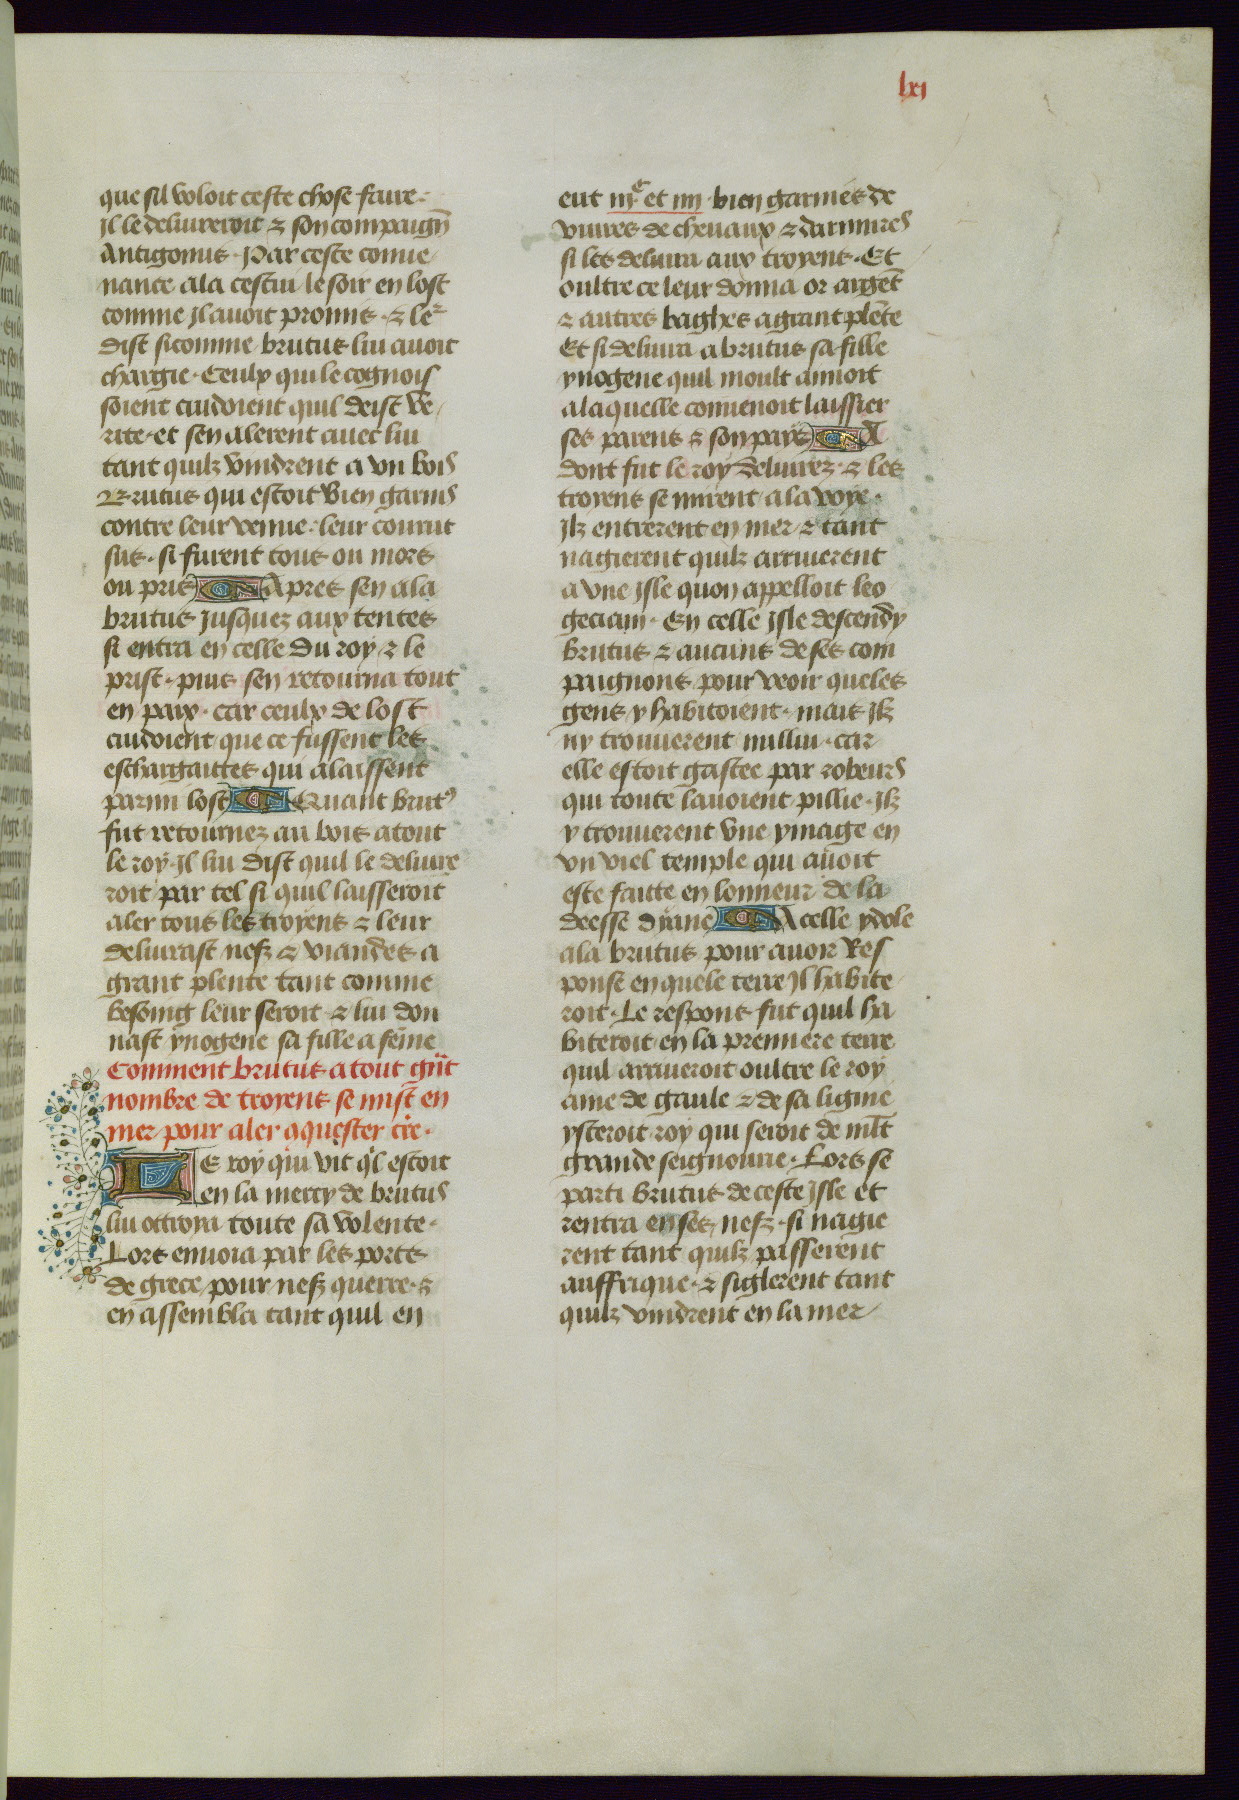 lxj
que sil voloit ceste chose faire·
il le delivreroit ⁊ son compaignō
Antigonus· Par ceste conue
nance ala cestui le soir en lost
comme il auoit promis· ⁊ ler
dist sicomme brutus lui auoit
chargie· Ceulx qui le cognois
soient cuidoient quil deist ve
rite· et sen alerent auec lui
tant quilz vindrent a vn bois
Brutus qui estoit bien garnis
contre leur venue· leur courut
sus· si furent tous ou mors
ou pris Apres sen ala
brutus jusquez aux tentes
si entra en celle du roy ⁊ le
prist· puis sen retourna tout
en paix· car ceulx de lost
cuidoient que ce fussent les
eschargaittes qui alaissent
parmi lost Quant brutꝰ
fut retournez au bois atout
le roy· Il lui dist quil le deliure
roit par tel si quil laisseroit
aler tous les troyens ⁊ leur
deliurast nefz ⁊ viandes a
grant plente tant comme
besoing leur seroit ⁊ lui don
nast ynogene sa fille a feme
Comment brutus atout grāt
nombre de troyens se mist en
mer pour aler aquester tr̄e·
Le roy qui vit ql estoit
en la mercy de brutus
lui ottroya toute sa volente·
Lors enuoia par les pors
de grece pour nefz querre· ⁊
en assembla tant quil en
eut iijc et iiij bien garnies de
viures de cheuaux ⁊ darmures
si les deliura aux troyens· Et
oultre ce leur donna or argēt
⁊ autres baghes a grant plēte
Et si deliura a brutus sa fille
ynogene quil moult amoit
a laquelle conuenoit laissier
ses parens ⁊ son pays A
dont fut le roy deliurez· ⁊ les
troyens se mirent a la voye·
Ilz entrerent en mer ⁊ tant
nagierent quilz arriuerent
a vne jsle quon appelloit leo
geciam· En celle jsle descendy
brutus ⁊ aucuns de ses com
paignons pour veoir queles
gens y habitoient· mais ilz
ny trouuerent nullui· car
elle estoit gastee par robeurs
qui toute lauoient pillie· Ilz
y trouuerent vne ymage en
vn viel temple qui auoit
este faitte en lonneur de la
deesse dyane A celle ydole
ala brutus pour auoir Res
ponse en quele terre Il habite
roit· Le respons fut quil ha
biteroit en la premiere terre
quil arriueroit oultre le roy
ame de gaule ⁊ de sa ligne
ysteroit roy qui seroit de mlt
grande seignourie· Lors se
parti brutus de ceste jsle et
rentra en ses nefz· si nagie
rent tant quilz passerent
auffrique· ⁊ siglerent tant
quilz vindrent en la mer